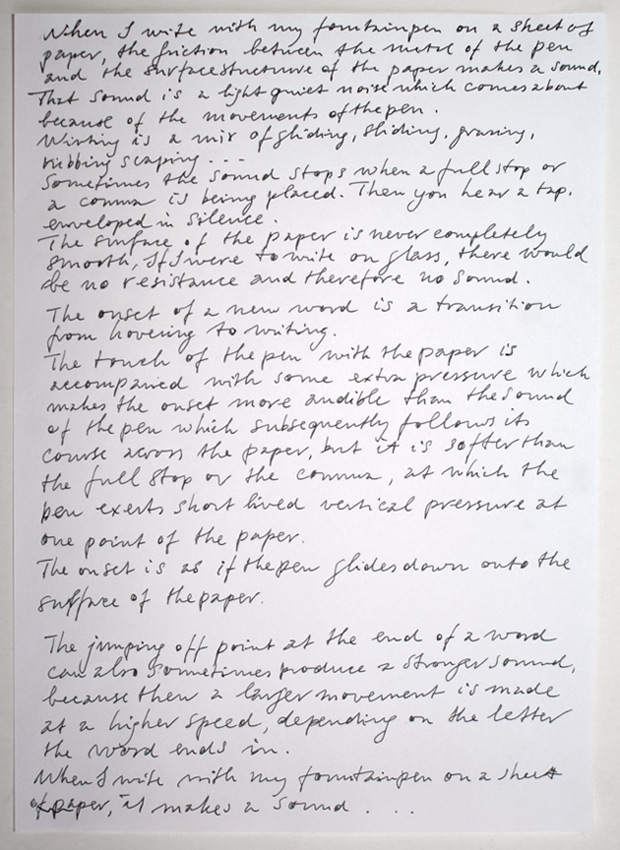 When I write with my fountainpen on a sheet of
paper, the friction between the metal of the pen
and the surfacestructure of the paper makes a sound.
That sound is a light quiet noise which comes about
because of the movements of the pen.
Writing is a mix of gliding, sliding, grazing,
rubbing scraping . . .
Sometimes the sound stops when a full stop or
a comma is being placed. Then you hear a tap,
enveloped in silence.
The surface of the paper is never completely
smooth, If I were to write on glass, there would
be no resistance and therefore no sound.
The onset of a new word is a transition
from hovering to writing.
The touch of the pen with the paper is
accompanied with some extra pressure which
makes the onset more audible than the sound
of the pen which subsequently follows its
course across the paper, but it is softer than
the full stop or the comma, at which the
pen exerts short lived vertical pressure at
one point of the paper.
The onset is as if the pen glides down onto the
surface of the paper.
The jumping off point at the end of a word
can also sometimes produce a stronger sound,
because then a larger movement is made
at a higher speed, depending on the letter
the word ends in.
When I write with my fountainpen on a sheet
of paper, it makes a sound . . .